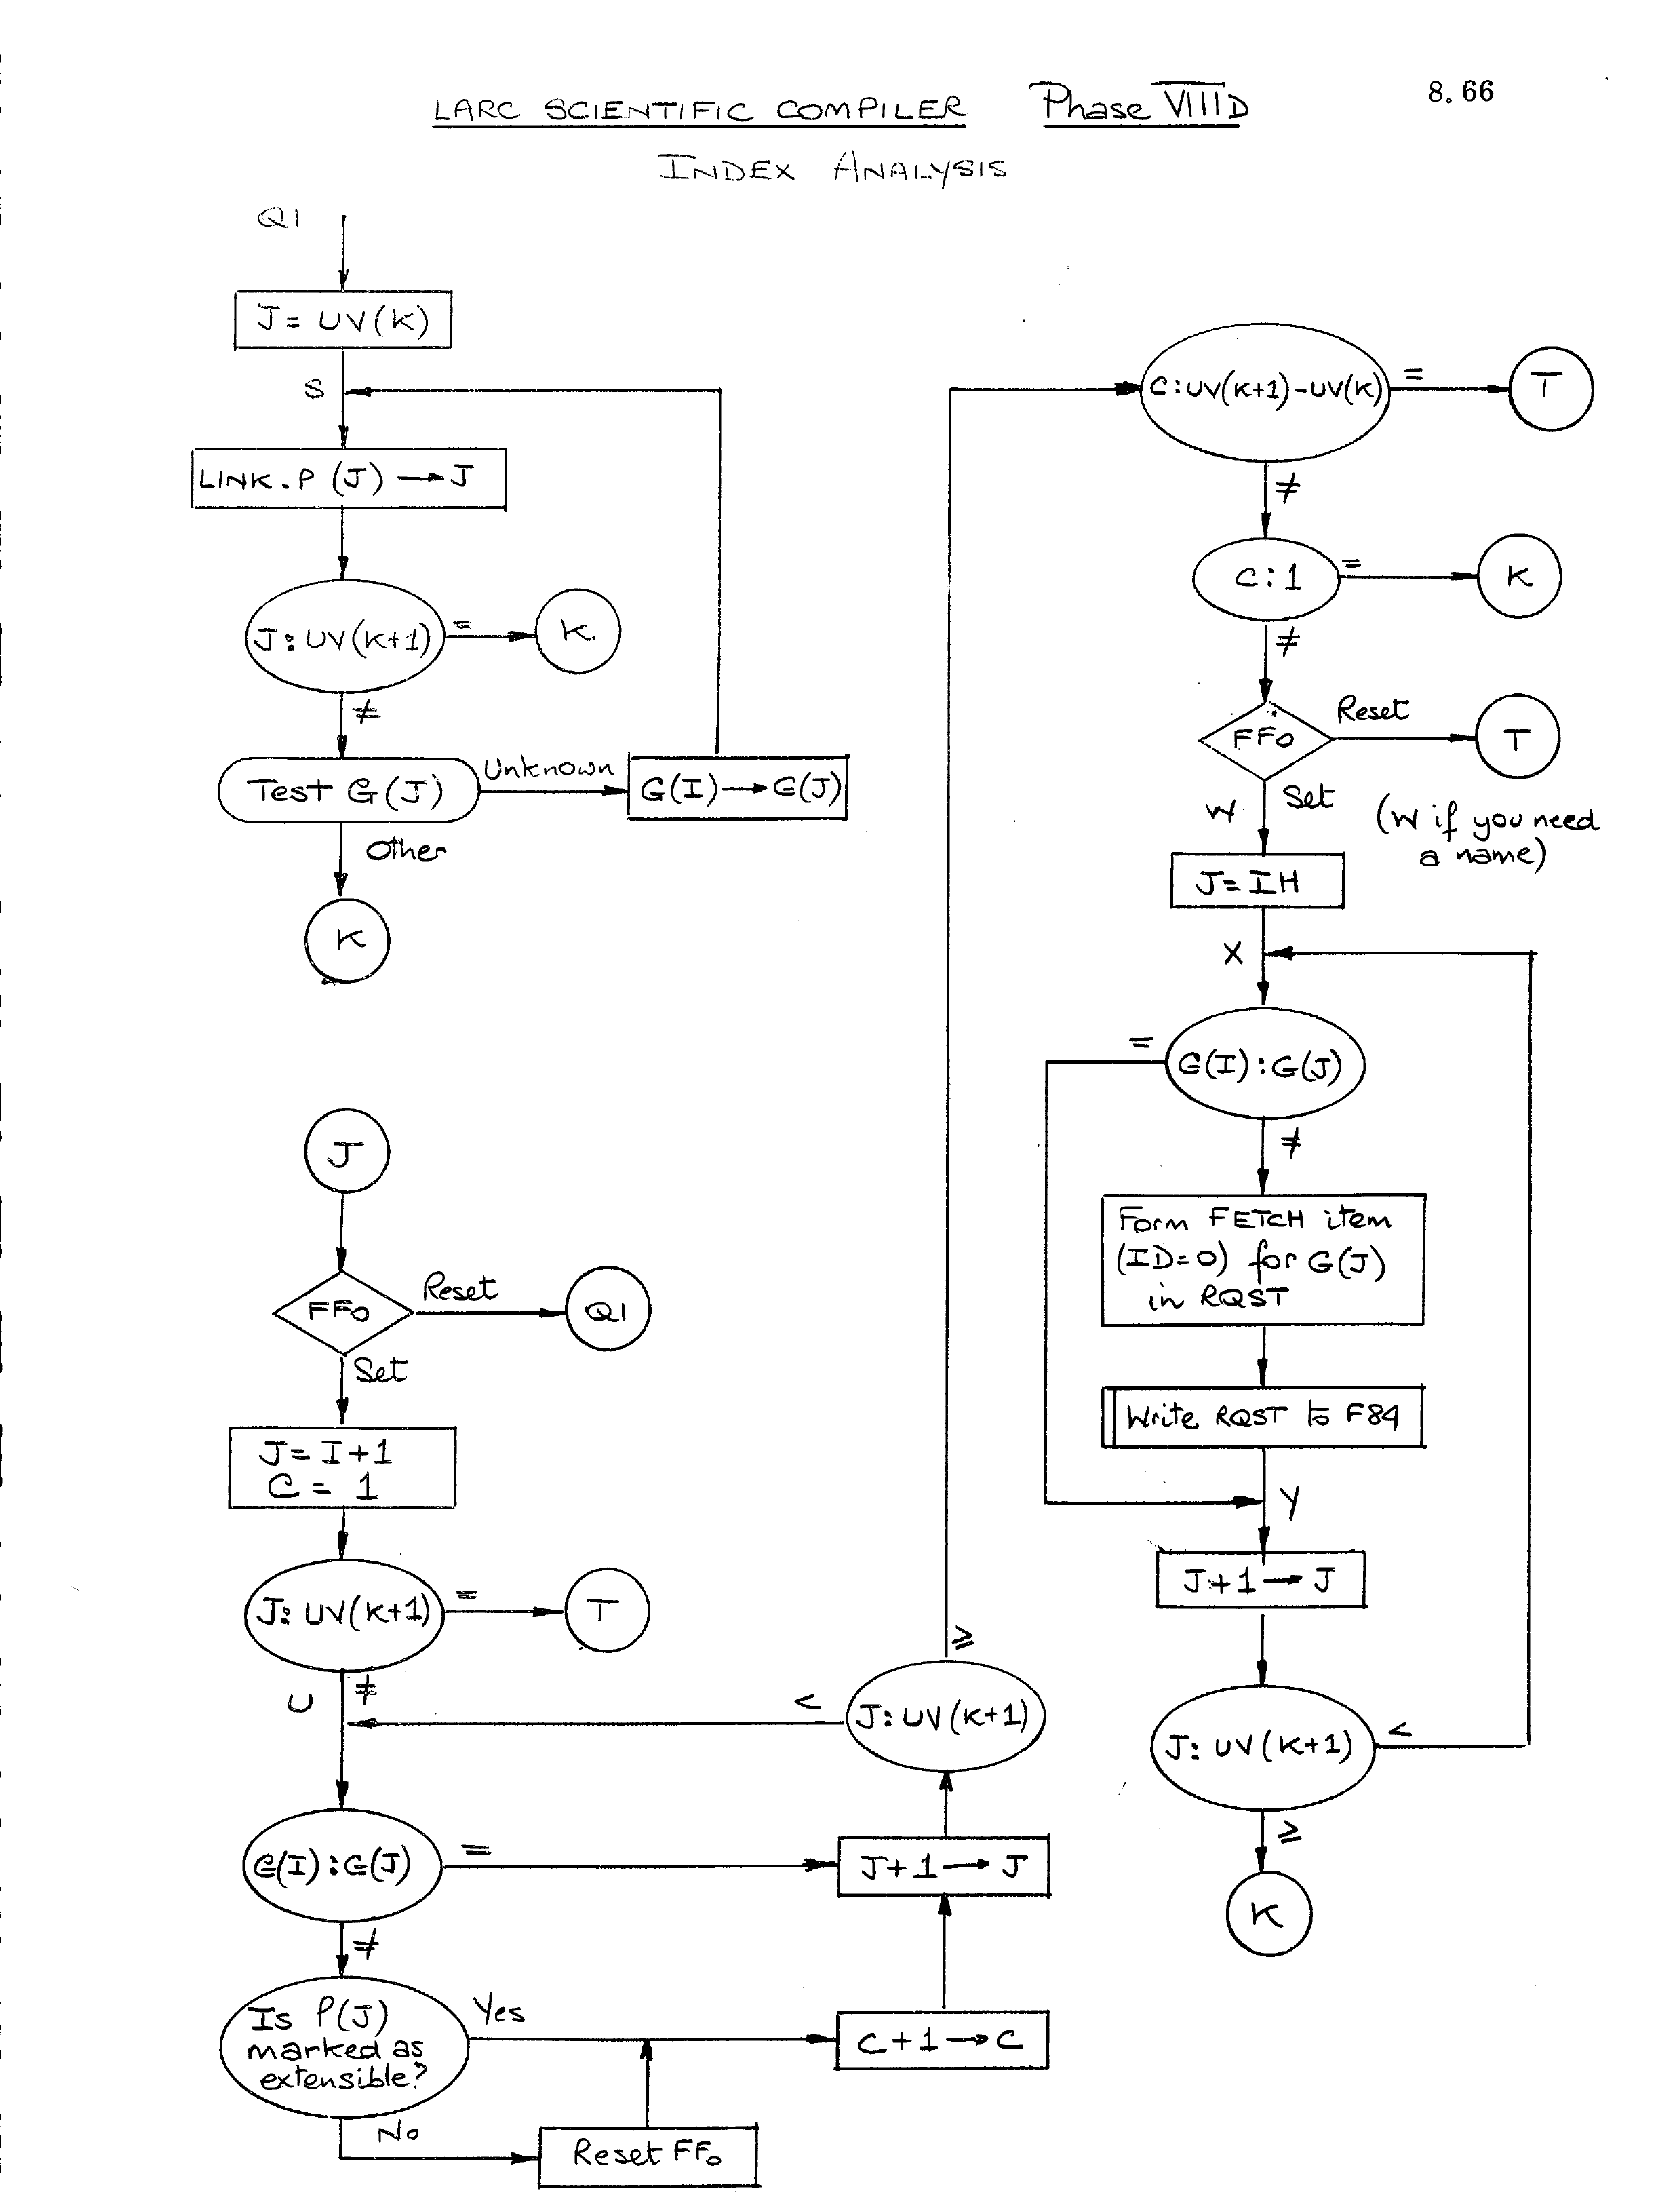 LARC SCIENTIFIC COMPILER Phase VIIID
8.66
INDEX ANALYSIS
Q1
J = UV(K)
S
LINK.P (J) → J
J : UV(K+1)
=
K
≠
Test G(J)
Unknown
G(I) → G(J)
Other
K
J
FF0
Reset
Q1
Set
J = I+1
C = 1
J : UV(K+1)
=
T
≠
U
<
J : UV(K+1)
≥
G(I) : G(J)
=
J+1 → J
≠
Is P(J)
marked as
extensible?
Yes
C+1 → C
No
Reset FF0
C : UV(K+1) - UV(K)
=
T
≠
C : 1
=
K
≠
FF0
Reset
T
Set
W
(W if you need
a name)
J = IH
X
G(I) : G(J)
=
≠
Form FETCH item
(ID=0) for G(J)
in RQST
Write RQST to F84
Y
J+1 → J
J : UV(K+1)
<
≥
K